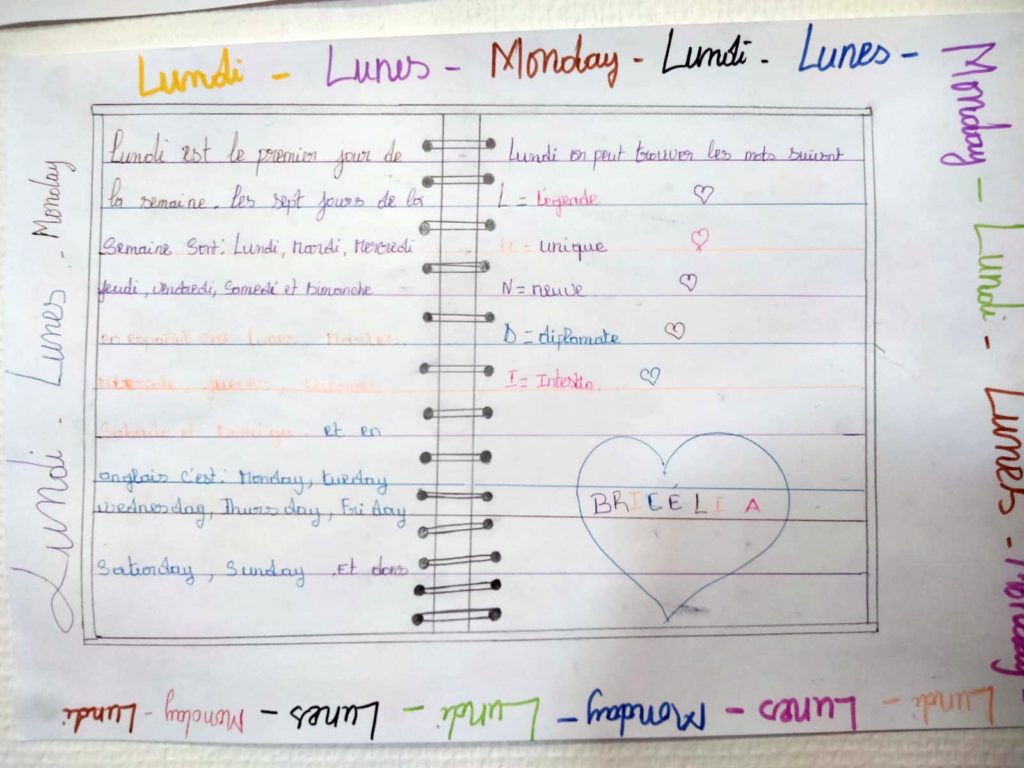 Lundi - Lunes - Monday - Lundi - Lunes -
Monday - Lundi - Lunes - Monday -
Lundi - Lunes - Monday - Lundi - Lunes - Monday - Lundi
Lundi - Lunes - Monday
Lundi est le premier jour de
la semaine. les sept jours de la
Semaine Sont: Lundi, Mardi, Mercredi
jeudi, vendredi, Samedi et Dimanche
Lunes
jueves,
et Domigo et en
anglais c'est: Monday, tuesday
wednesday, Thursday, Friday
Saturday, Sunday. Et dans
Lundi on peut trouver les mots suivant
L = Légende
U = unique
N = neuve
D = diplomate
I = Intestin.
BRICÉLIA